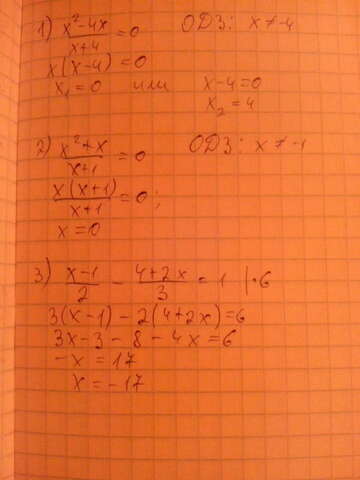 1) x²-4x/x+4=0 ОДЗ: x≠-4
x(x-4)=0
x₁=0 или x-4=0
x₂=4
2) x²+x/x+1=0 ОДЗ: x≠-1
x(x+1)/x+1=0;
x=0
3) x-1/2 - 4+2x/3=1 |·6
3(x-1)-2(4+2x)=6
3x-3-8-4x=6
-x=17
x=-17